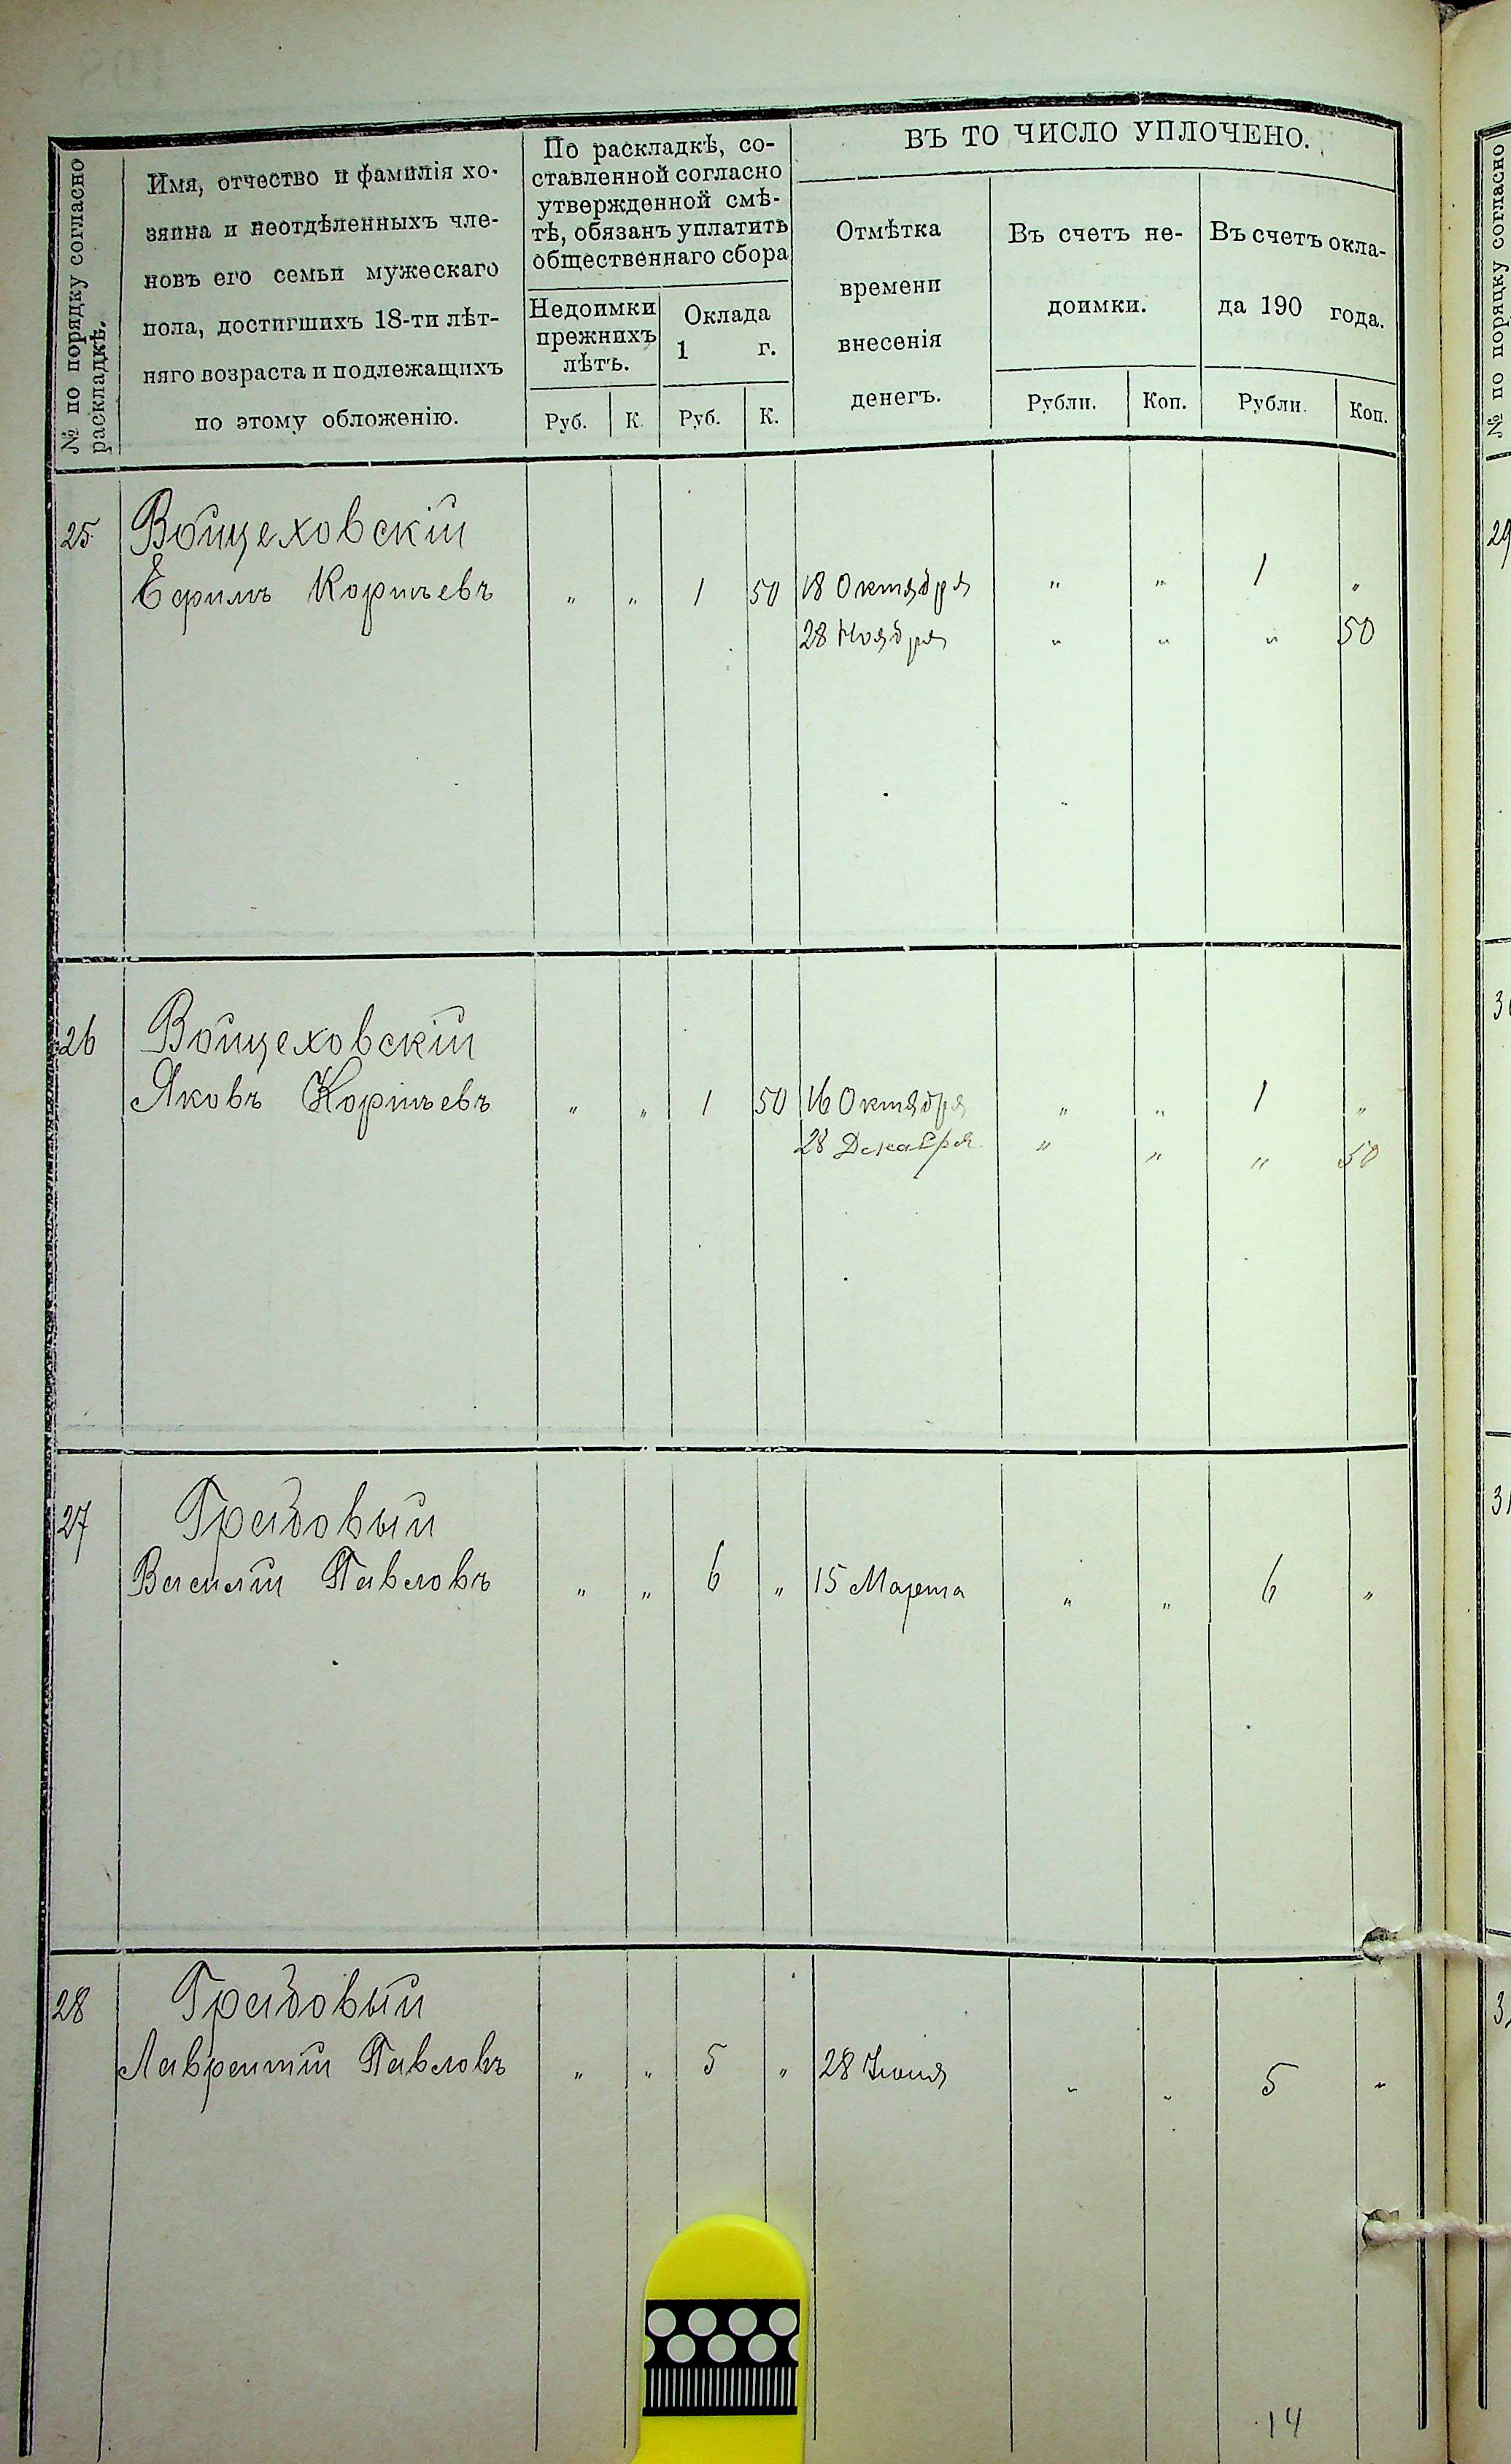 № по порядку согласно раскладкѣ.
Имя, отчество и фамилія хо-
зяина и неотдѣленныхъ чле-
новъ его семьи мужескаго
пола, достигшихъ 18-ти лѣт-
няго возраста и подлежащихъ
по этому обложенію.
По раскладкѣ, со-
ставленной согласно
утвержденной смѣ-
тѣ, обязанъ уплатить
общественнаго сбора
Недоимки
прежнихъ
лѣтъ.
Оклада
1 г.
Руб. К. Руб. К.
ВЪ ТО ЧИСЛО УПЛОЧЕНО.
Отмѣтка
времени
внесенія
денегъ.
Въ счетъ не-
доимки.
Въ счетъ окла-
да 190 года.
Рубли. Коп. Рубли. Коп.
25 Войцеховскій
Ефимъ Корнѣевъ " " 1 50 18 Октября " " 1 "
28 Ноября " " " 50
26 Войцеховскій
Яковъ Корнѣевъ " " 1 50 16 Октября " " 1 "
28 Декабря " " " 50
27 Градовый
Василій Павловъ " " 6 " 15 Марта " " 6 "
28 Градовый
Лаврентій Павловъ " " 5 " 28 Іюня " " 5 "
14
№ по порядку согласно
29